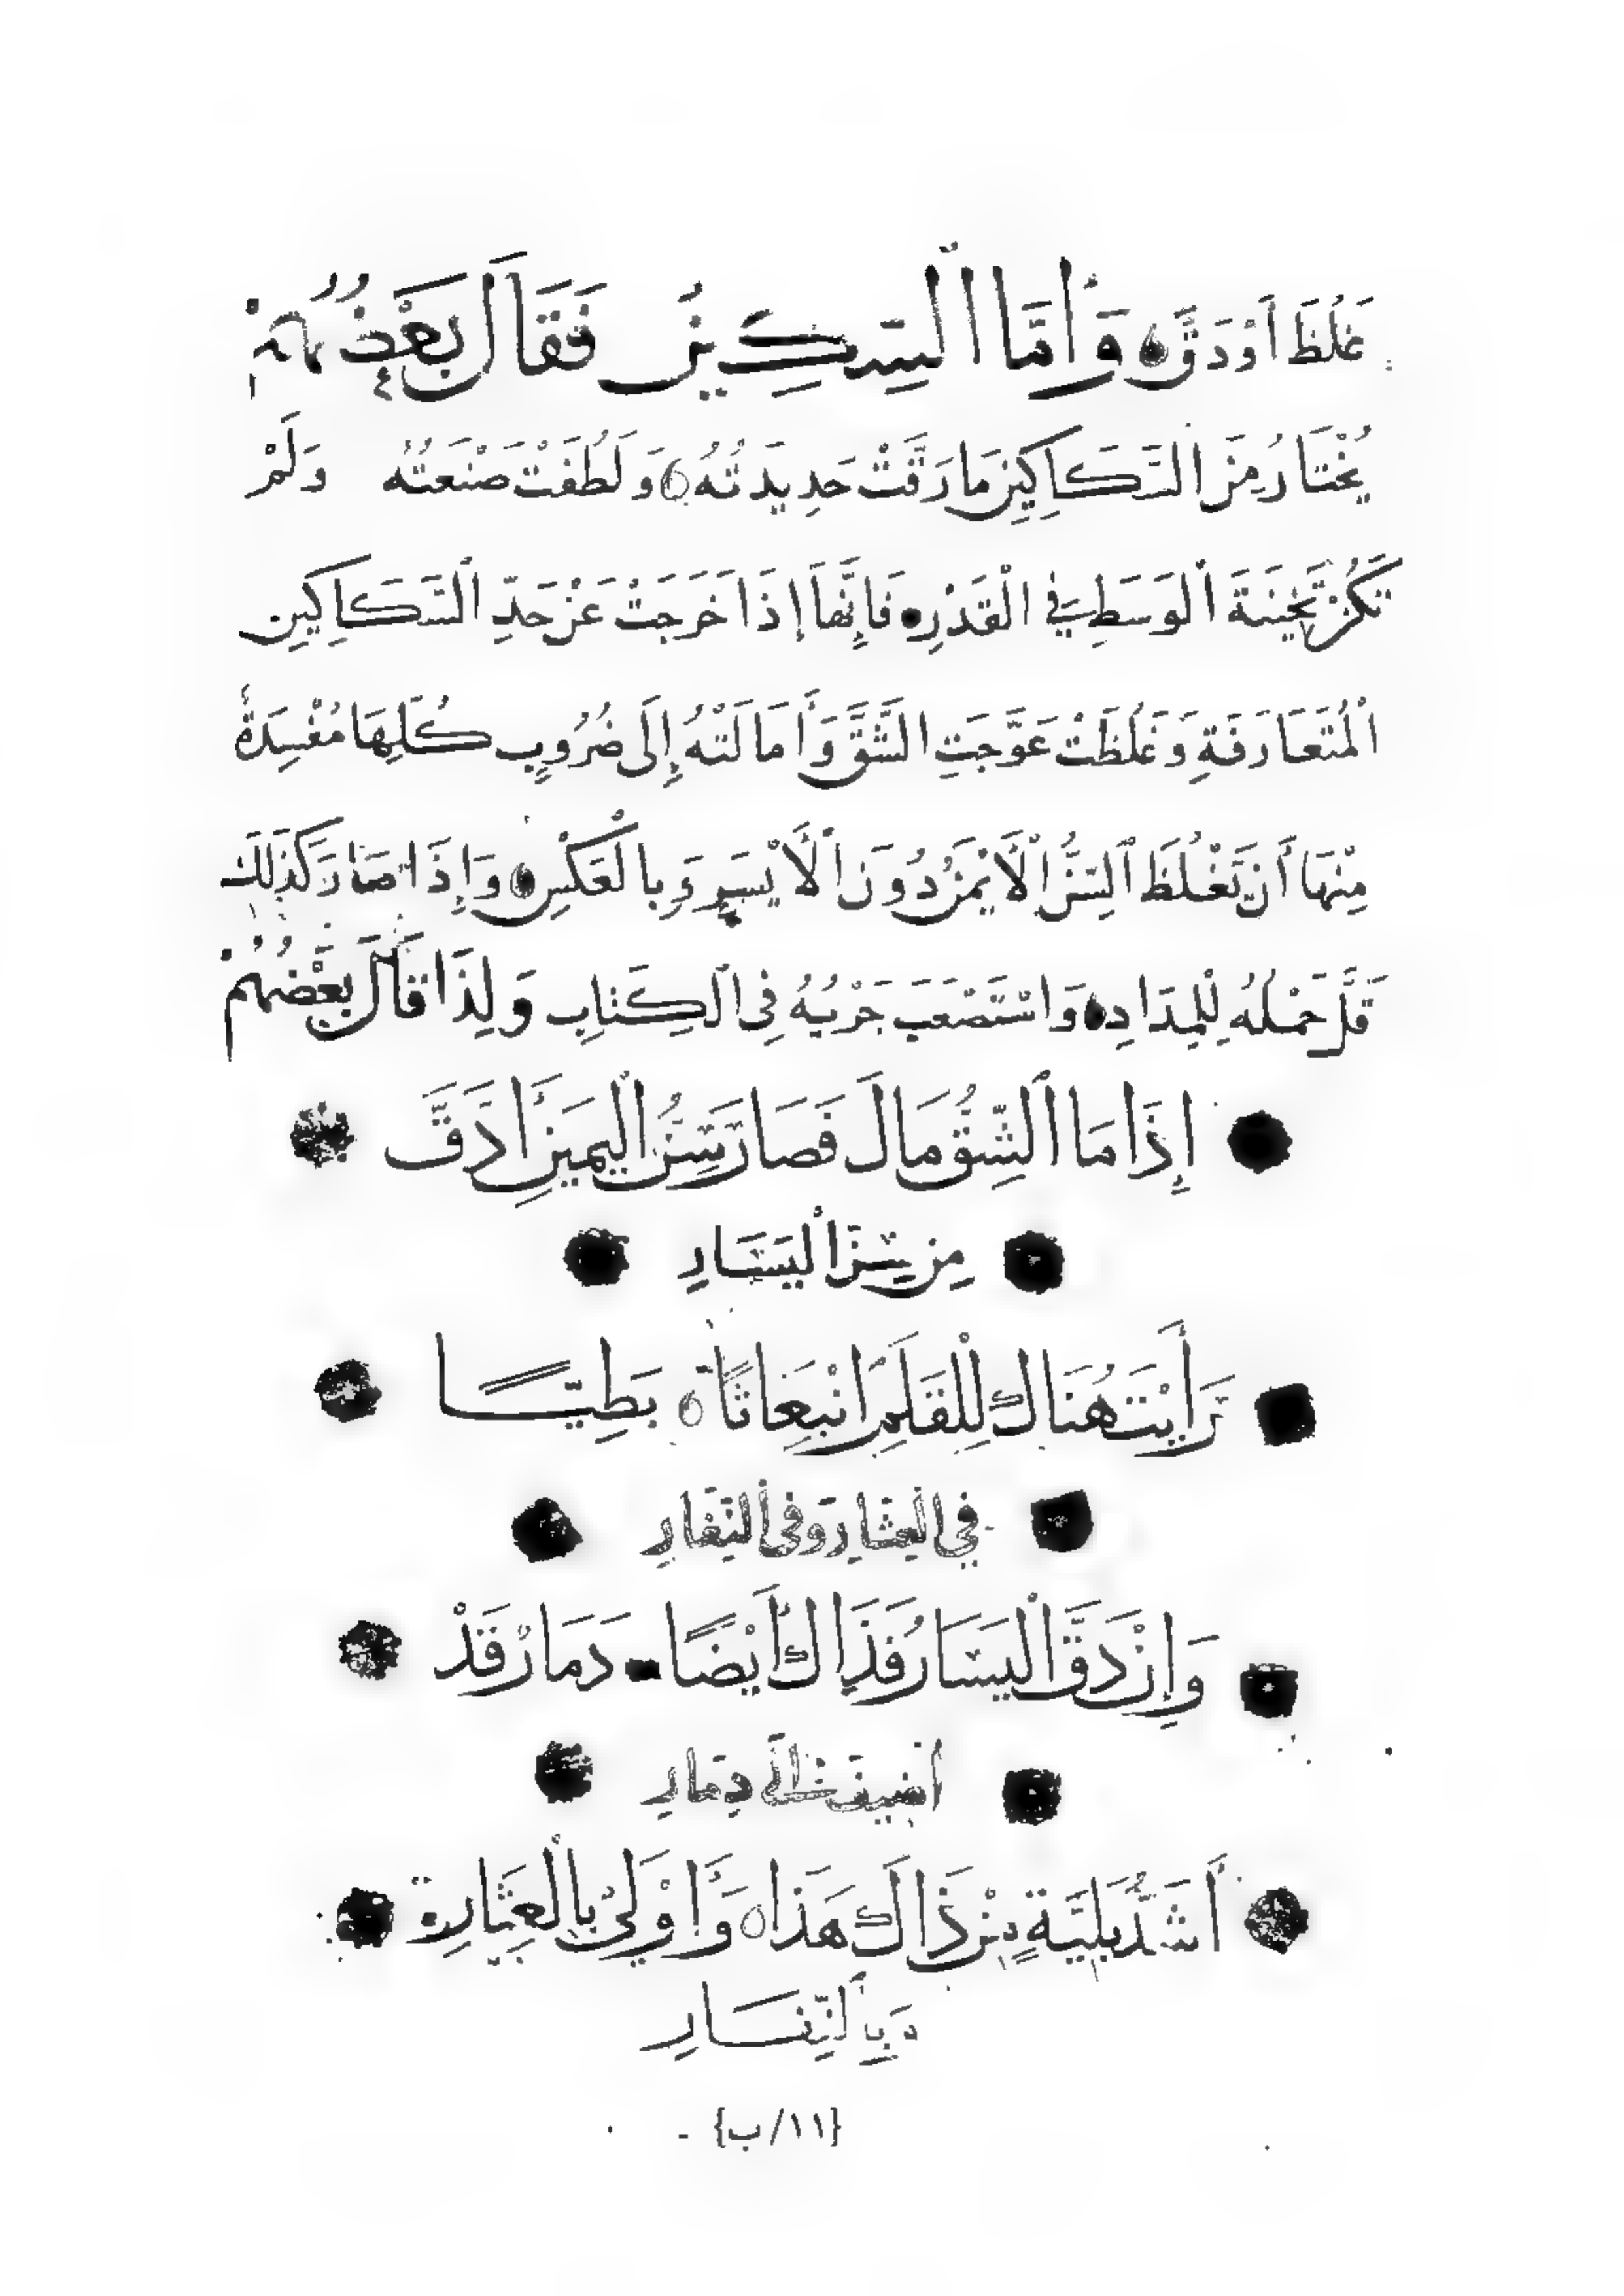 غَلُظَ أَوْ دَقَّ وَأَمَّا السِّكِّينُ فَقَالَ بَعْضُهُمْ
يُخْتَارُ مِنَ السَّكَاكِينِ مَا رَقَّتْ حَدِيدَتُهُ وَلَطُفَتْ صَنْعَتُهُ وَلَمْ
تَكُنْ ثَخِينَةَ الوَسَطِ فِي الْقَدْرِ فَإِنَّهَا إِذَا خَرَجَتْ عَنْ حَدِّ السَّكَاكِينِ
الْمُتَعَارَفَةِ وَغَلُظَتْ عَوَّجَتِ الشَّقَّ وَأَمَالَتْهُ إِلَى ضُرُوبٍ كُلُّهَا مُفْسِدَةٌ
مِنْهَا أَنْ تَغْلُظَ السِّنُّ الْأَيْمَنُ دُونَ الْأَيْسَرِ وَبِالْعَكْسِ وَإِذَا صَارَ كَذَلِكَ
قَلَّ حَمْلُهُ لِلْمِدَادِ وَاسْتَصْعَبَ جَرْيُهُ فِي الْكِتَابِ وَلِذَا قَالَ بَعْضُهُمْ
إِذَا مَا الشِّقُّ مَالَ فَصَارَ سِنُّ الْيَمِينِ أَدَقَّ
مِنْ سِنِّ الْيَسَارِ
رَأَيْتَ هُنَاكَ لِلْقَلَمِ انْبِعَاثًا بَطِيًّا
فِي العِثَارِ وَفِي النِّفَارِ
وَإِنْ دَقَّ الْيَسَارُ فَذَاكَ أَيْضًا دَمَارٌ قَدْ
أُضِيفَ إِلَى دِمَارِ
أَشَدُّ بَلِيَّةٍ مِنْ ذَاكَ هَذَا وَأَوْلَى بِالْعِثَارِ
وَبِالنِّفَارِ
{١١/ب}